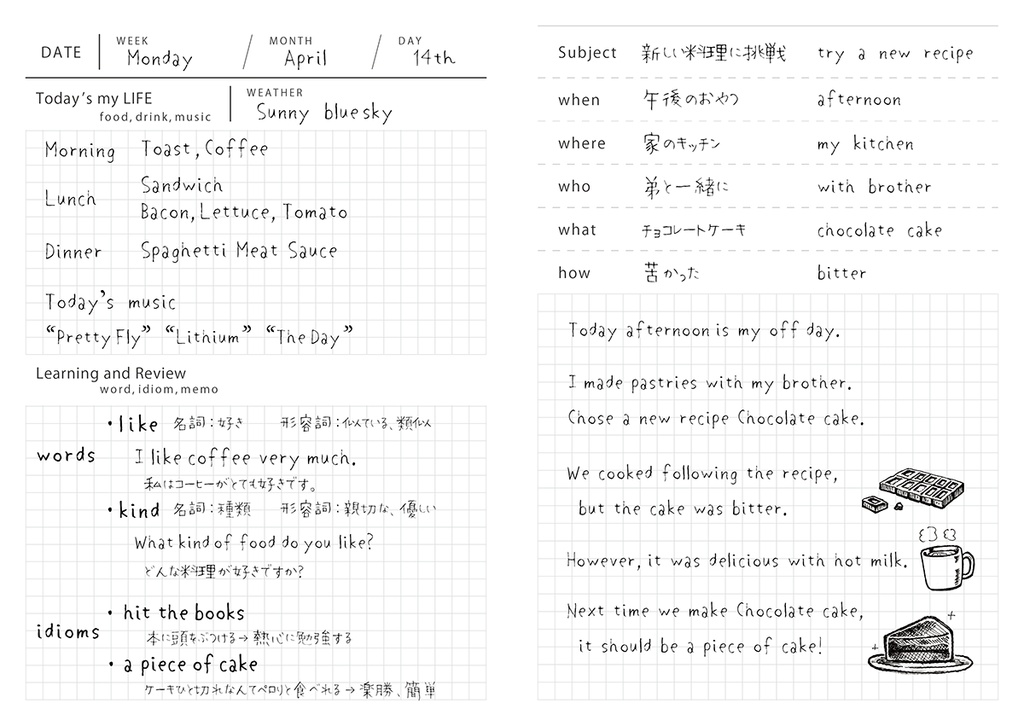 DATE WEEK Monday / MONTH April / DAY 14th
Today's my LIFE
food, drink, music
WEATHER
Sunny blue sky
Morning Toast, Coffee
Lunch Sandwich
Bacon, Lettuce, Tomato
Dinner Spaghetti Meat Sauce
Today's music
“Pretty Fly” “Lithium” “The Day”
Learning and Review
word, idiom, memo
words
・like 名詞：好き 形容詞：似ている、類似
I like coffee very much.
私はコーヒーがとても好きです。
・kind 名詞：種類 形容詞：親切な、優しい
What kind of food do you like?
どんな料理が好きですか?
idioms
・hit the books
本に頭をぶつける→熱心に勉強する
・a piece of cake
ケーキひと切れなんてペロリと食べれる→楽勝、簡単
Subject 新しい料理に挑戦 try a new recipe
when 午後のおやつ afternoon
where 家のキッチン my kitchen
who 弟と一緒に with brother
what チョコレートケーキ chocolate cake
how 苦かった bitter
Today afternoon is my off day.
I made pastries with my brother.
Chose a new recipe Chocolate cake.
We cooked following the recipe,
but the cake was bitter.
However, it was delicious with hot milk.
Next time we make Chocolate cake,
it should be a piece of cake!